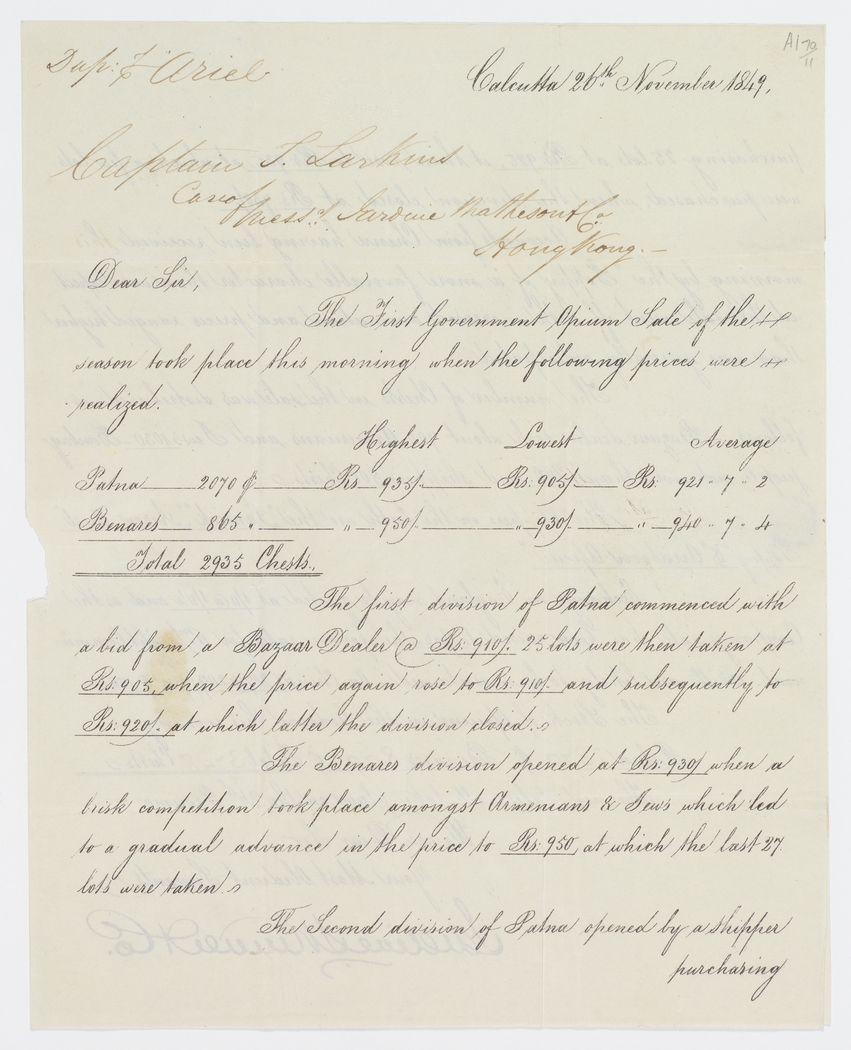 A1-70/11
Dup: p Ariel
Calcutta 26th November 1849,
Captain T. Larkins
Care of Messrs. Jardine Matheson & Co
HongKong.-
Dear Sir,
The First Government Opium Sale of the
season took place this morning when the following prices were
realized.
Highest Lowest Average
Patna 2070 Rs 935/. Rs: 905/. Rs: 921 " 7 " 2
Benares 865 " " 950/. " 930/. " 940 " 7 " 4
Total 2935 Chests.
The first division of Patna commenced with
a bid from a Bazaar Dealer @ Rs: 910/. 25 lots were then taken at
Rs: 905, when the price again rose to Rs: 910/. and subsequently to
Rs: 920/. at which latter the division closed.
The Benares division opened at Rs: 930/ when a
brisk competition took place amongst Armenians & Jews which led
to a gradual advance in the price to Rs: 950, at which the last 27
lots were taken.
The Second division of Patna opened by a shipper
purchasing